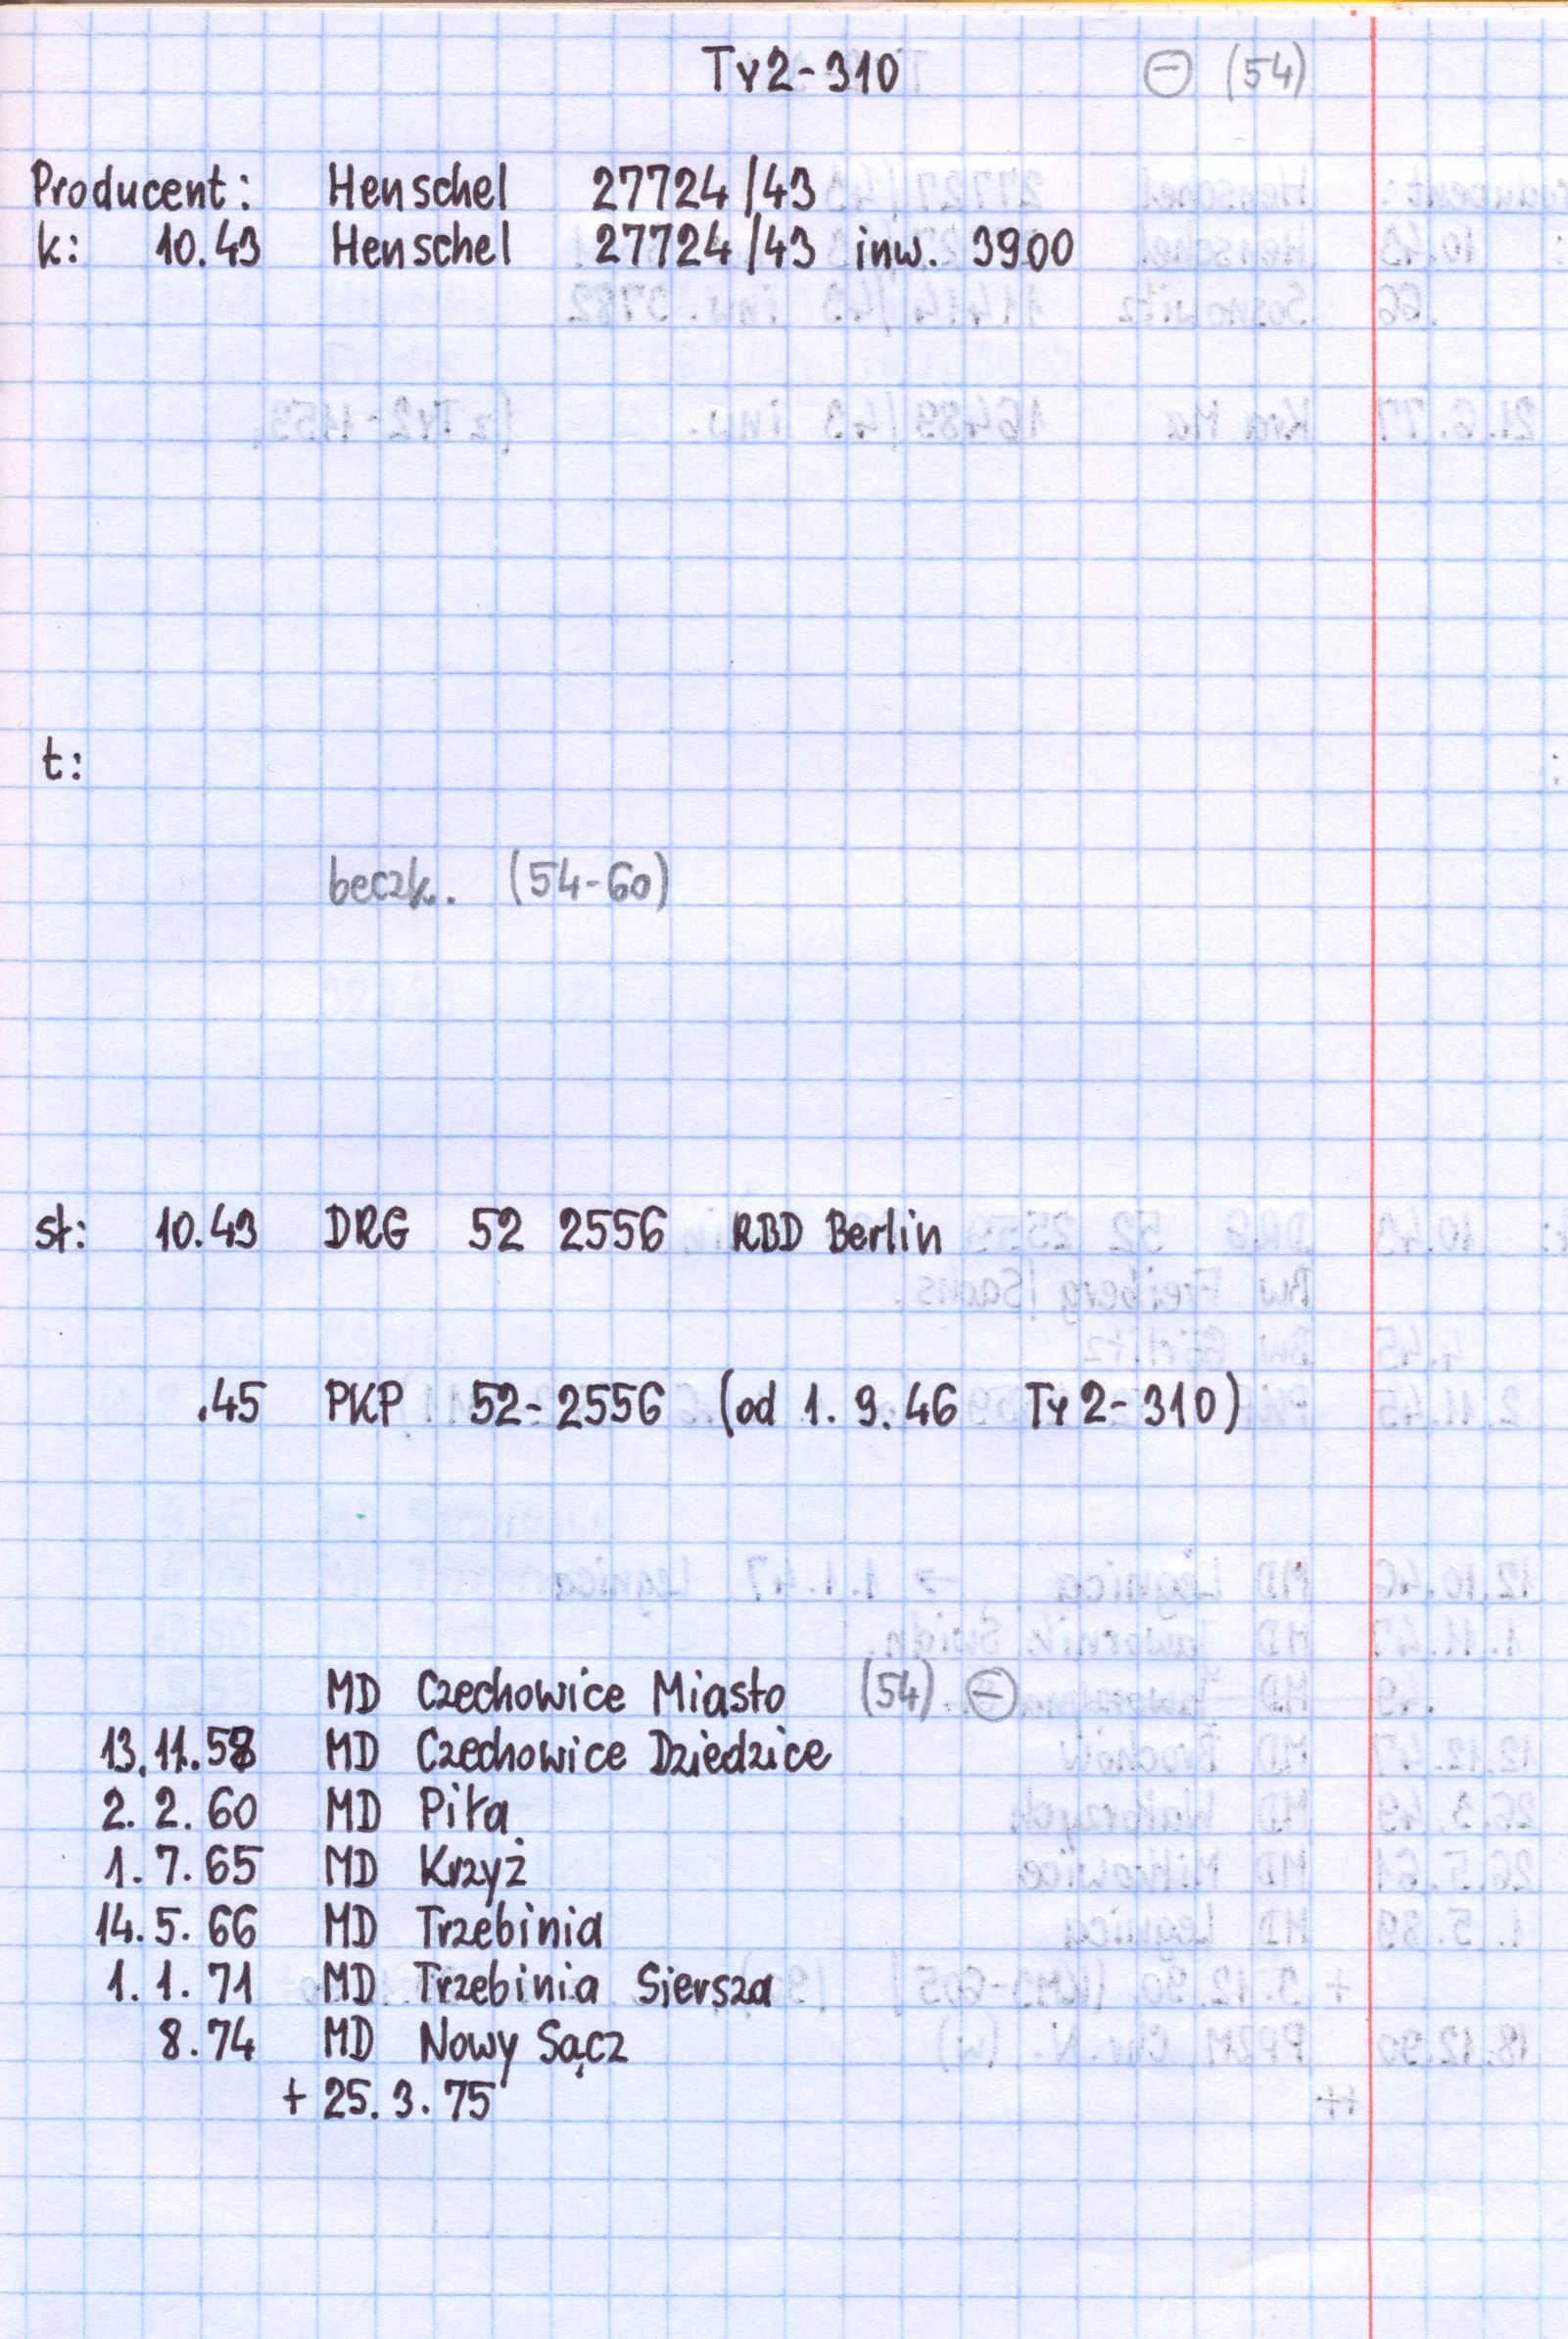 Ty2-310 ⊖ (54)
Producent: Henschel 27724/43
k: 10.43 Henschel 27724/43 inw. 3900
t:
beczk. (54-60)
st: 10.43 DRG 52 2556 RBD Berlin
.45 PKP 52-2556 (od 1.9.46 Ty2-310)
MD Czechowice Miasto (54) ⊖
13.11.58 MD Czechowice Dziedzice
2.2.60 MD Piła
1.7.65 MD Krzyż
14.5.66 MD Trzebinia
1.1.71 MD Trzebinia Siersza
8.74 MD Nowy Sącz
+ 25.3.75